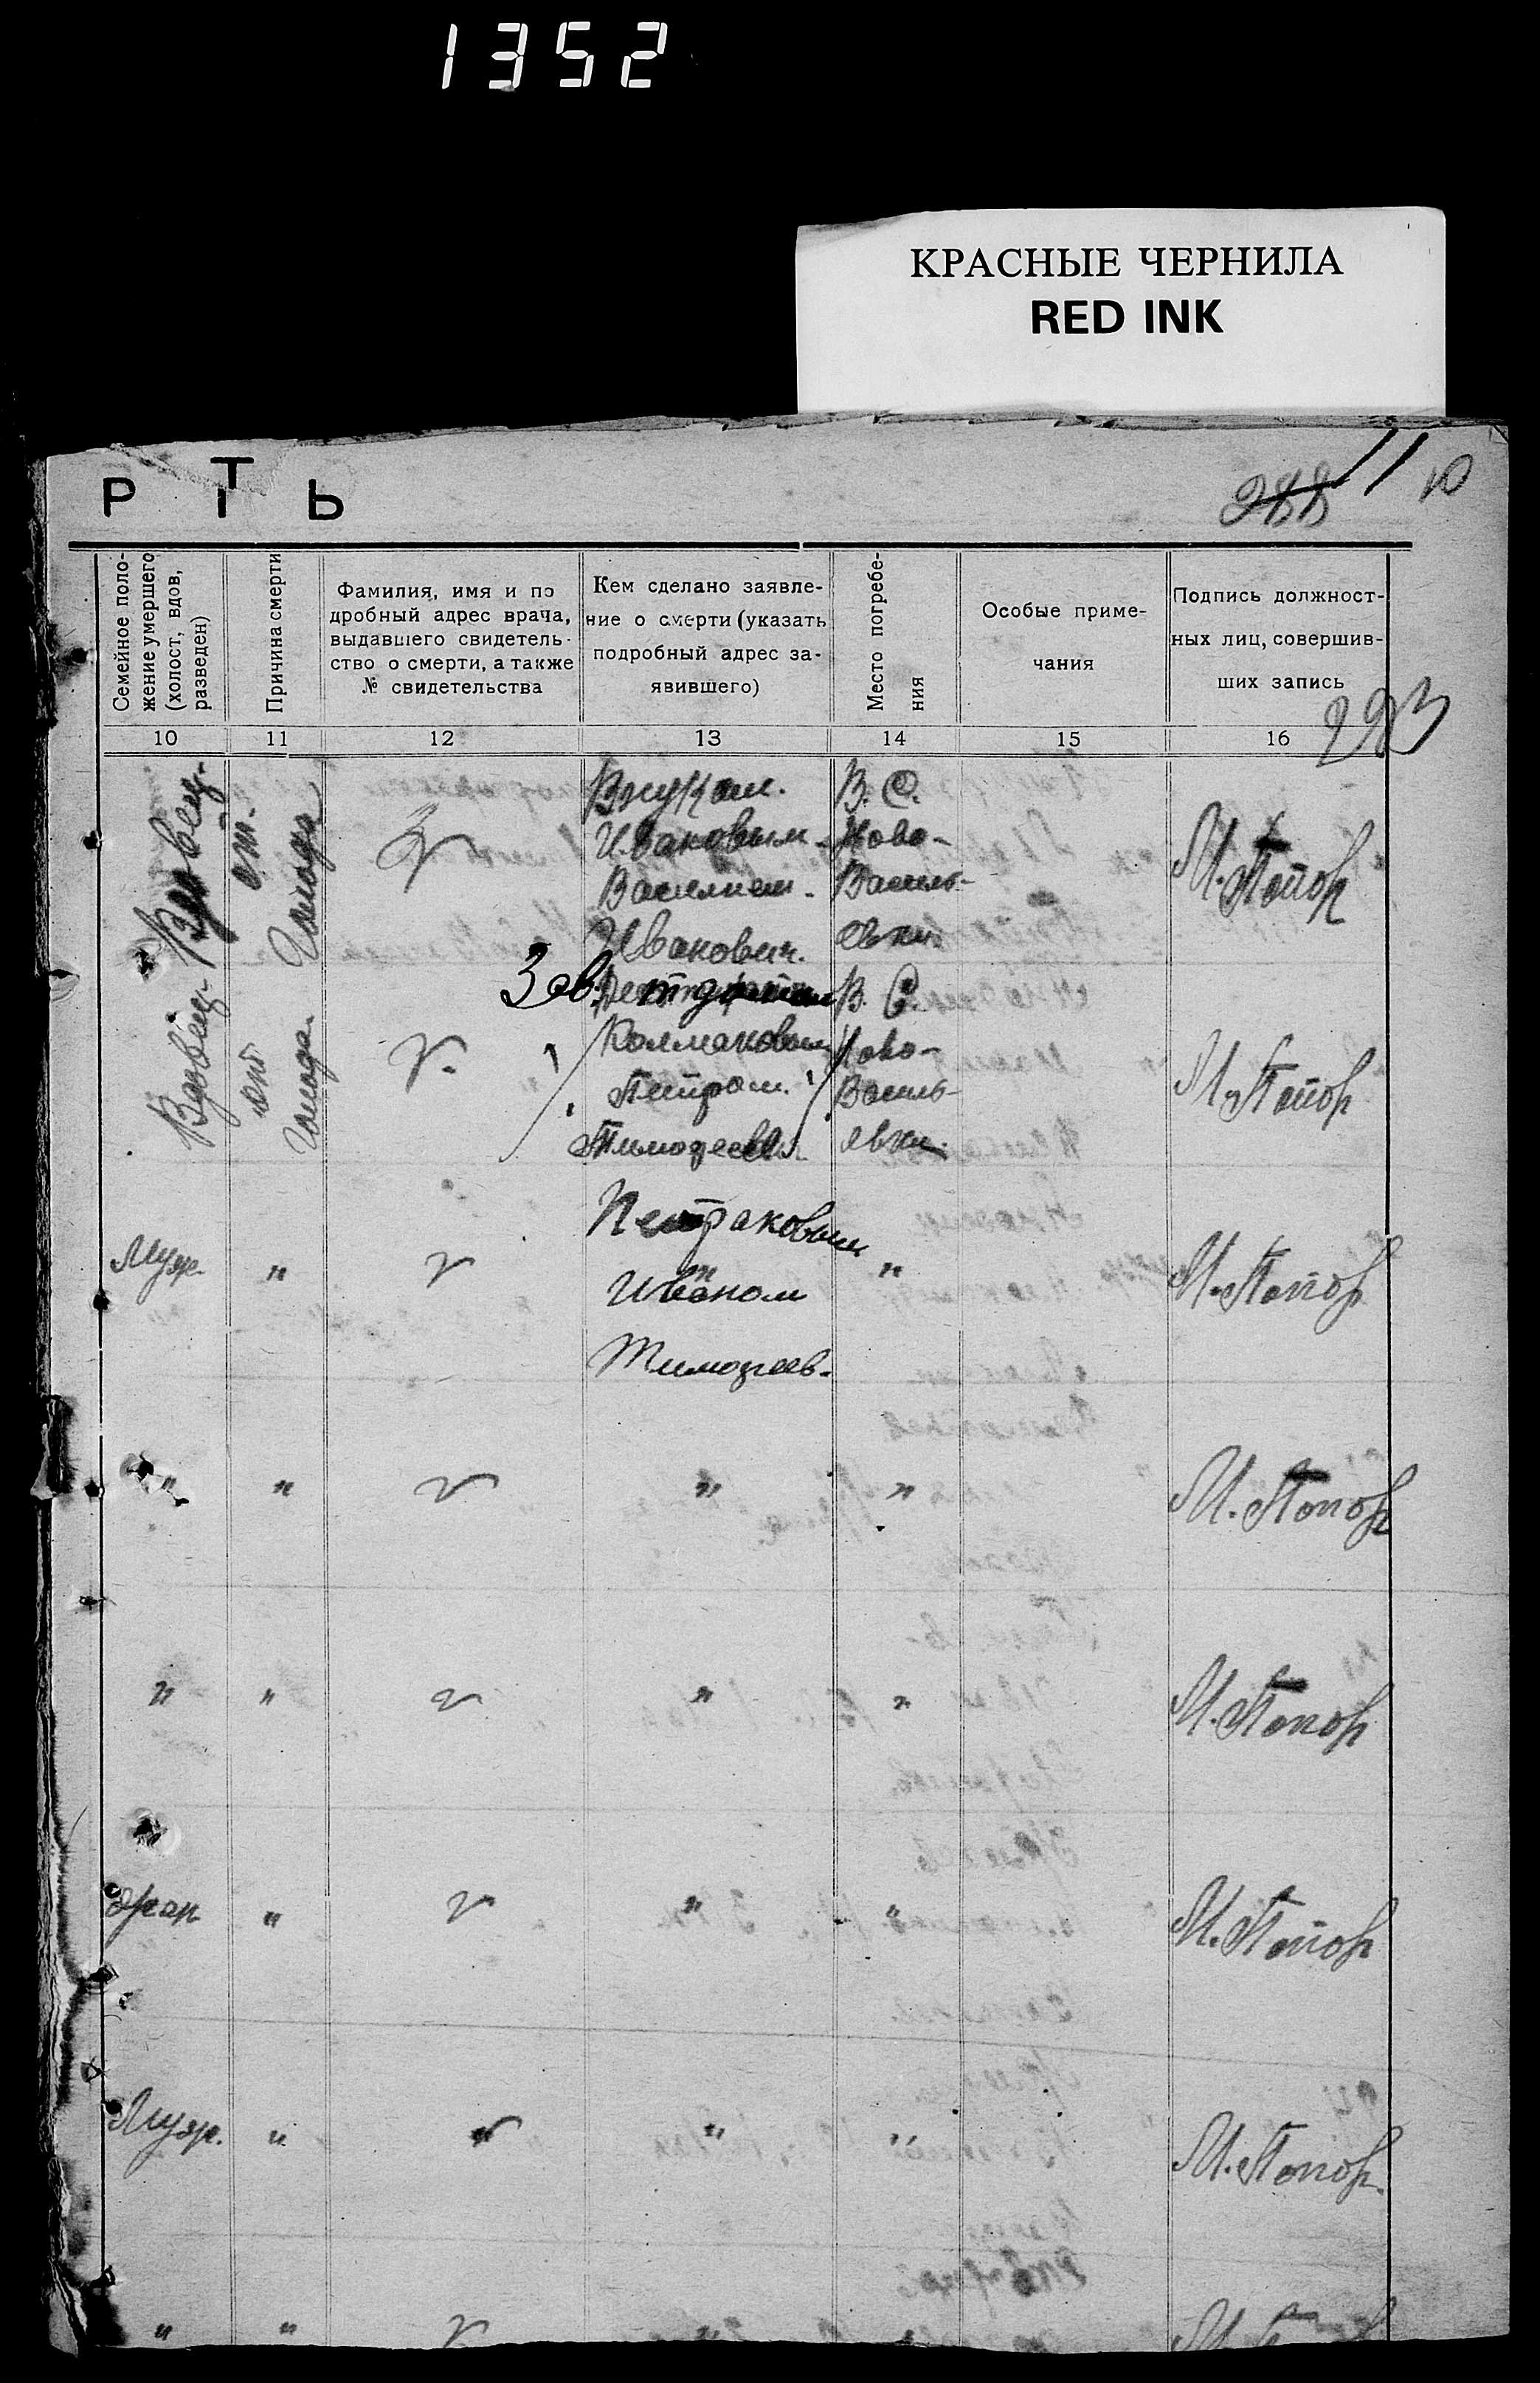 1352
КРАСНЫЕ ЧЕРНИЛА
RED INK
РТЬ
288 11 10
Семейное поло-
жение умершего
(холост, вдов,
разведен)
Причина смерти
Фамилия, имя и по
дробный адрес врача,
выдавшего свидетель-
ство о смерти, а также
№ свидетельства
Кем сделано заявле-
ние о смерти (указать
подробный адрес за-
явившего)
Место погребе-
ния
Особые приме-
чания
Подпись должност-
ных лиц, совершив-
ших запись
293
10 11 12 13 14 15 16
Вдовец
от
голода
Внуком.
Иваковым
Василием
Ивакович.
В. С.
Ново-
Василь-
евки
М. Топор
Вдовец
от
голода.
Зав.
Колмаковым
Петром.
Тимофеевич
В. С.
Ново-
Василь-
евки.
М. Топор
Муж. "
Петраковым
Иваном
Тимофеев.
"
М. Топор
" " " "
М. Топор
" " " "
М. Топор
жен " " "
М. Топор
Муж. " " "
М. Топор.
" " "